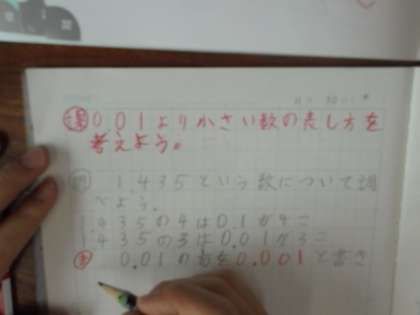 0.01より小さい数の表し方を
考えよう。
1.435という数について調
べよう。
.435の4は0.1が4こ
.435の3は0.01が3こ
0.01の を0.001と書き